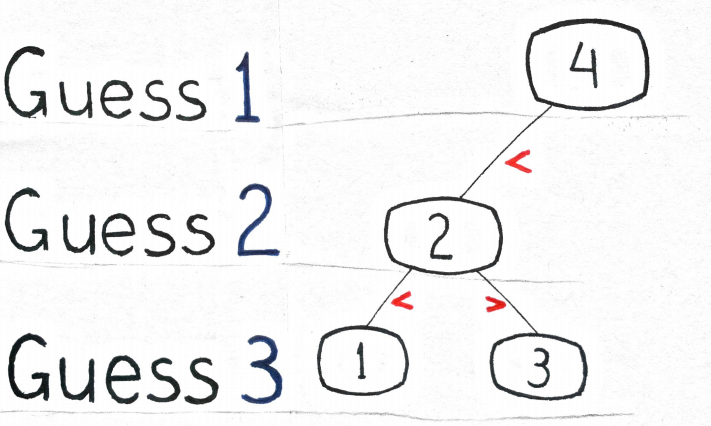 Guess 1
4
<
Guess 2
2
< >
Guess 3
1 3